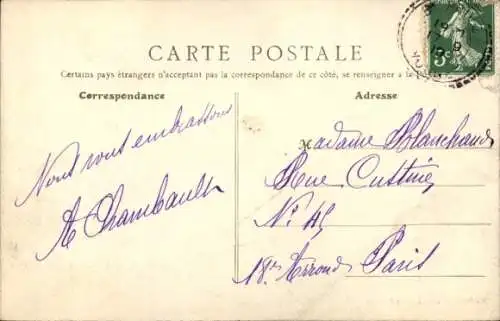 CARTE POSTALE
Certains pays étrangers n'acceptant pas la correspondance de ce côté, se renseigner à la
Correspondance
Adresse
Nous vous embrassons
A Chambault
Madame Blanchaud
Rue Custine
N° 45
18e Arrond Paris
5